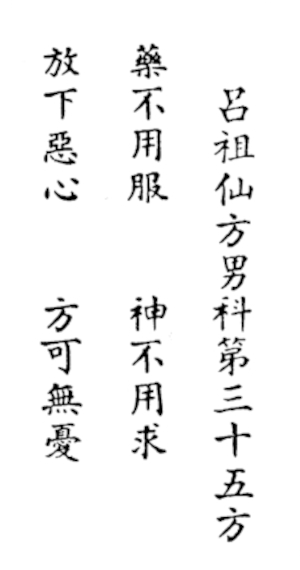 呂祖仙方男科第三十五方
藥不用服　神不用求
放下惡心　方可無憂